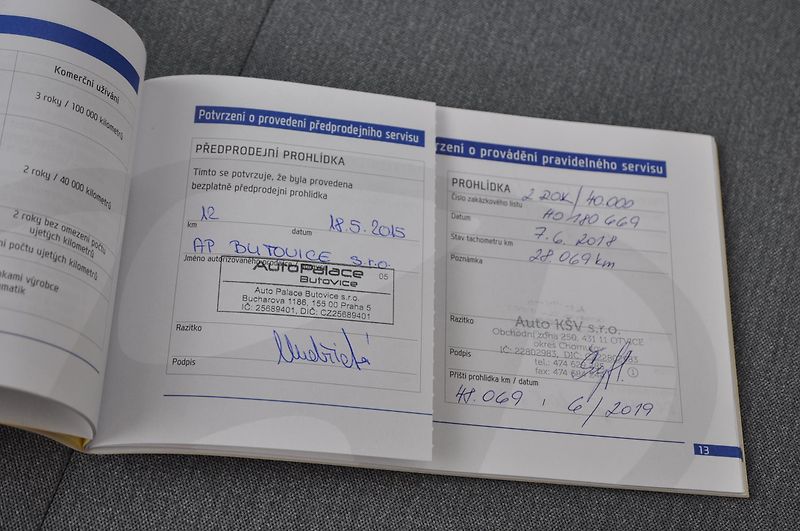 Komerční užívání
3 roky / 100 000 kilometrů
2 roky / 40 000 kilometrů
2 roky bez omezení počtu
ujetých kilometrů
ení počtu ujetých kilometrů
nkami výrobce
matik
Potvrzení o provedení předprodejního servisu
PŘEDPRODEJNÍ PROHLÍDKA
Tímto se potvrzuje, že byla provedena
bezplatně předprodejní prohlídka
12 18.5.2015
km datum
AP BUTOVICE s.r.o.
Jméno autorizovaného
AutoPalace 05
Butovice
Auto Palace Butovice s.r.o.
Bucharova 1186, 155 00 Praha 5
IČ: 25689401, DIČ: CZ25689401
Razítko
Podpis
rzení o provádění pravidelného servisu
PROHLÍDKA 2 ROK/40.000
Číslo zakázkového listu HO 180 669
Datum 7.6.2018
Stav tachometru km 28 069 km
Poznámka
Razítko
Auto KŠV s.r.o.
Obchodní zóna 250, 431 11 OTVICE
okres Chomutov
IČ: 22802983, DIČ:
tel.: 474
fax: 474
Podpis
Příští prohlídka km / datum
48.069 , 6/2019
13